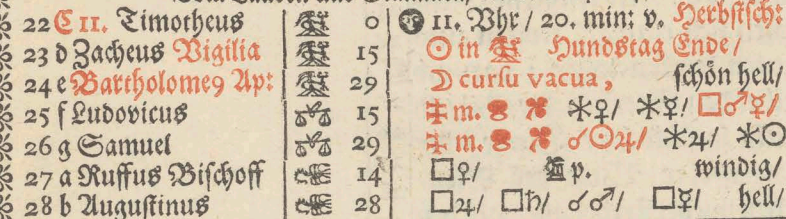 22 C 11. Timotheus ♍ 0 🌑 11. Vhr / 20. min: v. Herbstsch:
23 d Zacheus Vigilia ♍ 15 ☉ in ♍ Hundstag Ende /
24 e Bartholome9 Ap: ♍ 29 ☽ cursu vacua, schön hell /
25 f Ludovicus ♎ 15 m. ⚹♀/ ⚹☿/ □♂☿/
26 g Samuel ♎ 29 m. ☌☉♃/ ⚹♃/ ⚹☉
27 a Ruffus Bischoff ♏ 14 □♀/ p. windig/
28 b Augustinus ♏ 28 □♃/ □♄/ ☌♂/ □☿/ hell/